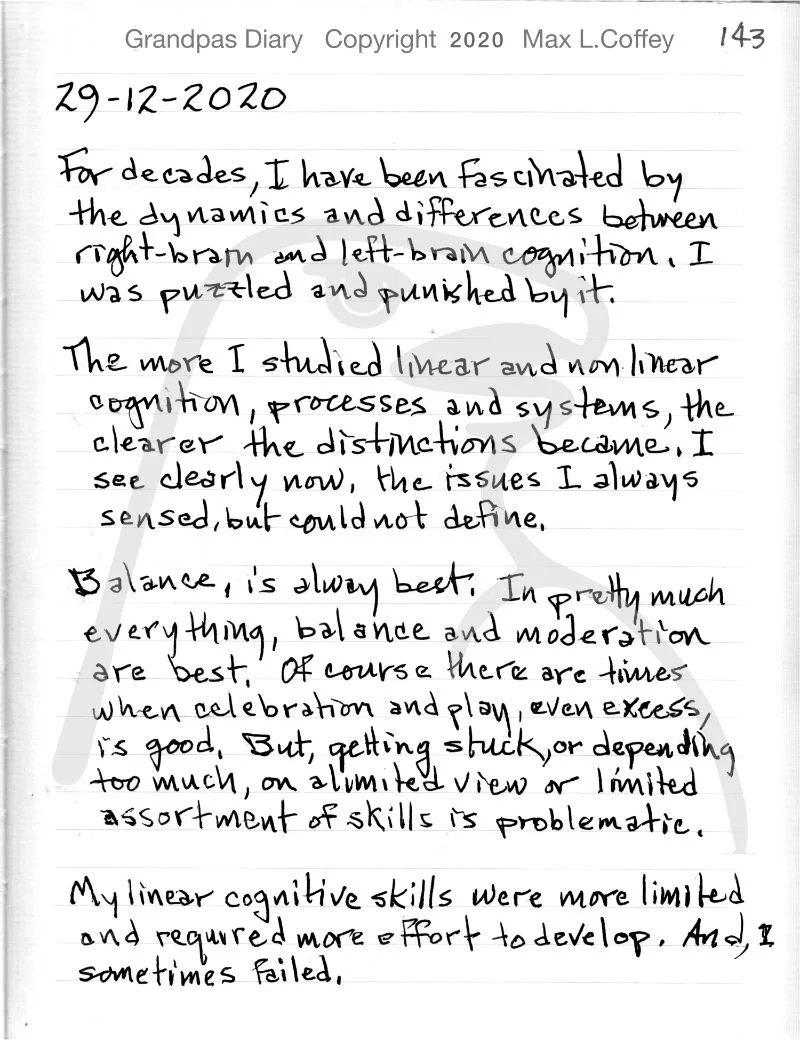 Grandpas Diary Copyright 2020 Max L.Coffey 143
29-12-2020
For decades, I have been fascinated by
the dynamics and differences between
right-brain and left-brain cognition. I
was puzzled and punished by it.
The more I studied linear and non linear
cognition, processes and systems, the
clearer the distinctions became. I
see clearly now, the issues I always
sensed, but could not define.
Balance, is alway best. In pretty much
everything, balance and moderation
are best. Of course there are times
when celebration and play, even excess,
is good. But, getting stuck, or depending
too much, on a limited view or limited
assortment of skills is problematic.
My linear cognitive skills were more limited
and required more effort to develop. And, I
sometimes failed.